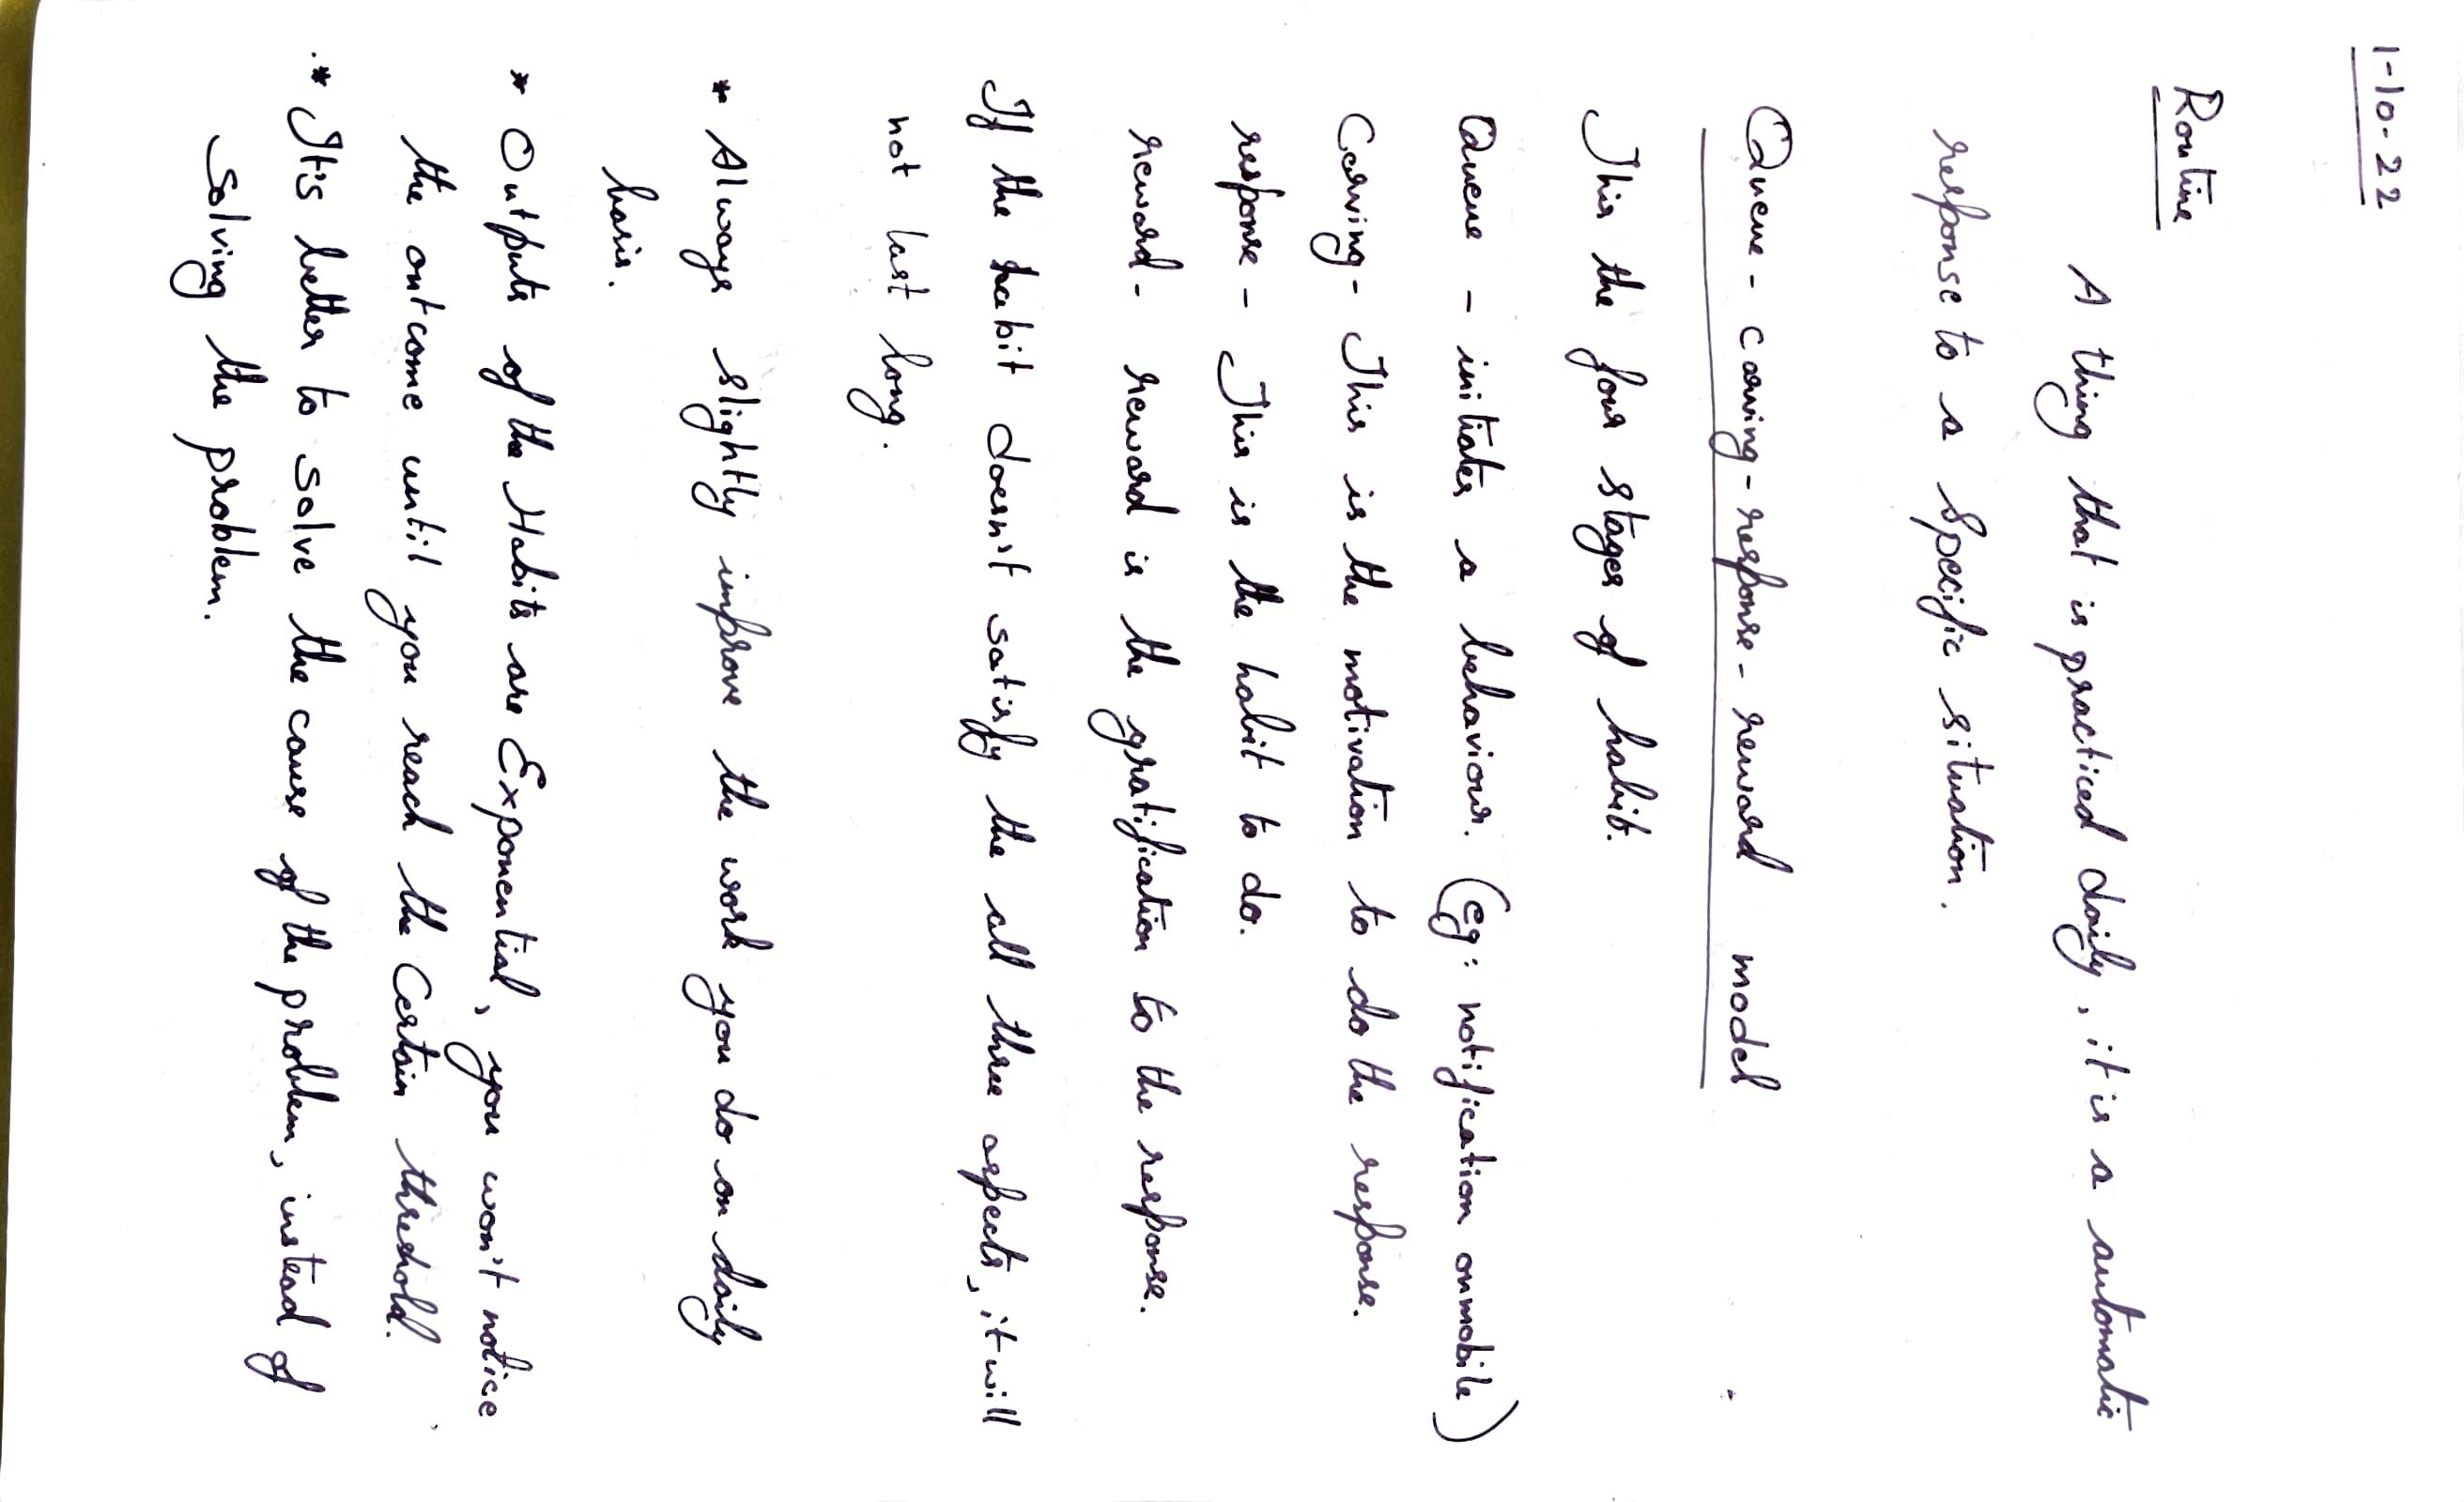 1-10-22
Routine
A thing that is practiced daily, it is a automatic
response to a specific situation.
Queue - caving - response - reward model
This the four stages of habit.
Queue - initiates a behaviour. (eg: notification on mobile)
Carving - This is the motivation to do the response.
response - This is the habit to do.
reward - reward is the gratification to the response.
If the habit doesn't satisfy the all three aspects, it will
not last long.
* Always slightly improve the work you do on daily
basis.
* Outputs of the Habits are Exponential, you won't notice
the outcome until you reach the Certain threshold.
* It's better to solve the cause of the problem, instead of
solving the problem.